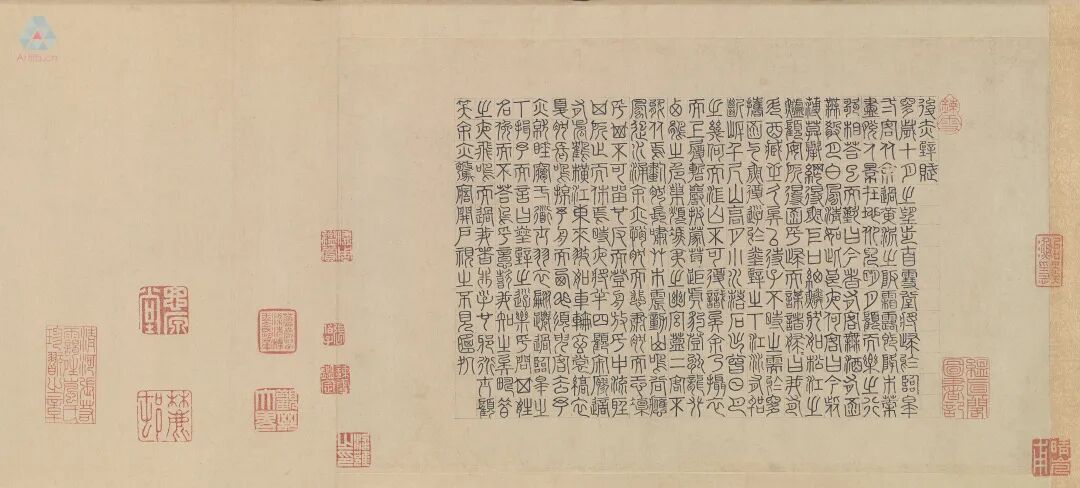 後赤壁賦
是歲十月之望步自雪堂將歸於臨皋
二客從余過黃泥之阪霜露既降木葉
盡脫人景在地仰見明月顧而樂之行
歌相答已而歎曰今者有客無酒有酒
無殽月白風清如此良夜何客曰今者
薄莫舉網得魚巨口細鱗狀如松江之
鱸顧安所得酒乎歸而謀諸婦曰我有
斗酒藏之久矣以待子不時之需於是
攜酒與魚復遊於赤壁之下江流有聲
斷岸千尺山高月小水落石出曾日月
之幾何而江山不可復識矣余乃攝衣
而上履巉巖披蒙茸踞虎豹登虯龍攀
栖鶻之危巢頫馮夷之幽宮蓋二客不
能從焉劃然長嘯草木震動山鳴谷應
風起水涌余亦悄然而悲肅然而恐凜
乎其不可留也反而登舟放乎中流聽
其所止而休焉時夜將半四顧寂寥適
有孤鶴橫江東來翅如車輪玄裳縞衣
戛然長鳴掠予舟而西也須臾客去予
亦就睡夢一道士羽衣翩躚過臨皋之
下揖予而言曰赤壁之遊樂乎問其姓
名俛而不答嗚呼噫嘻我知之矣疇昔
之夜飛鳴而過我者非子也耶道士顧
笑余亦驚寤開戶視之不見其處
Artlib.cn